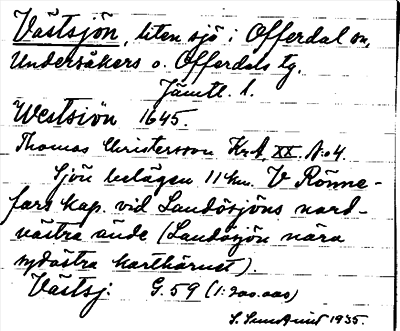 Västsjön, liten sjö i Offerdal sn,
Undersåkers o. Offerdals tg.
Jämtl. l.
Westsiön 1645.
Thomas Christersson Krt XX. No 4.
Sjön belägen 11 km. V Rönne-
fors kap. vid Landösjöns nord-
västra ände (Landösjön nära
sydöstra karthörnet).
Västsj. G. 59 (1:200.000)
1935.